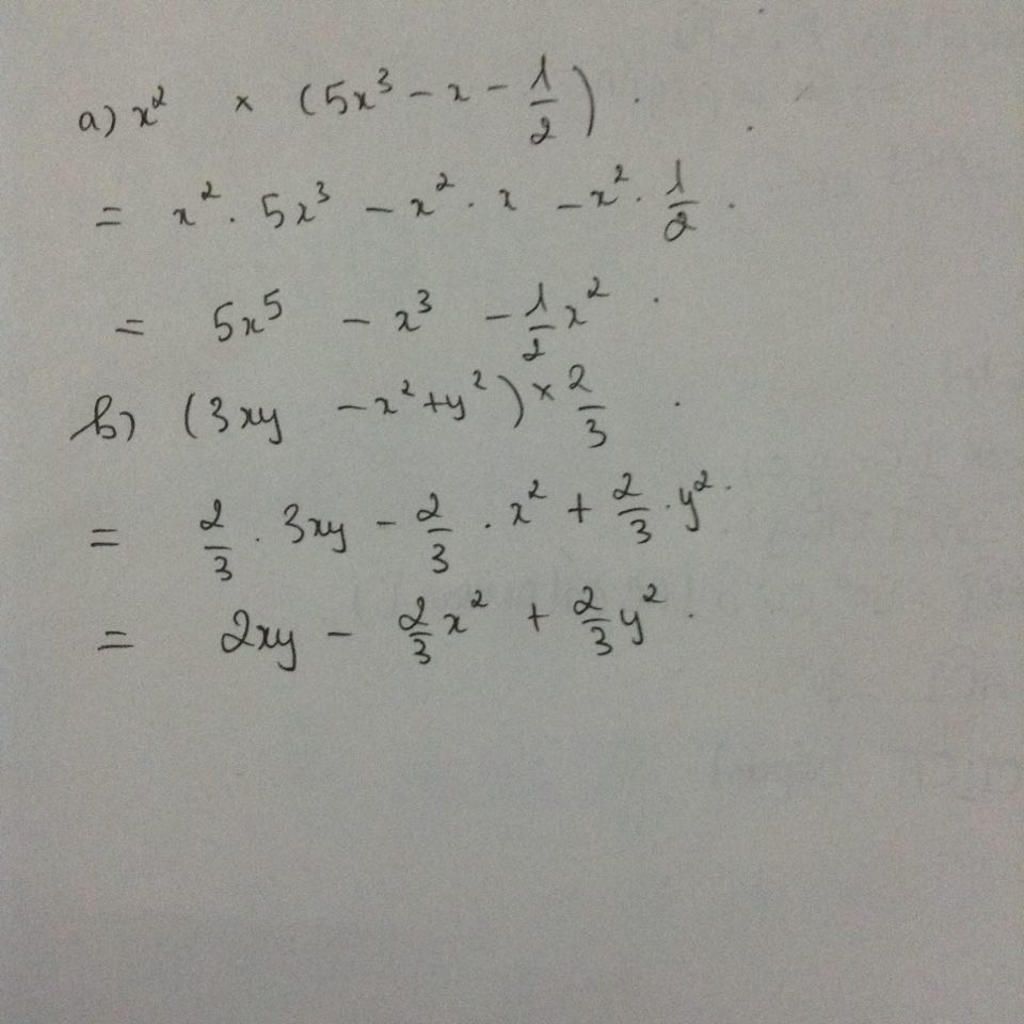 a) x² × (5x³ - x - 1/2).
= x² . 5x³ - x² . x - x² . 1/2 .
= 5x⁵ - x³ - 1/2 x² .
b) (3xy - x² + y²) × 2/3 .
= 2/3 . 3xy - 2/3 . x² + 2/3 . y² .
= 2xy - 2/3 x² + 2/3 y² .